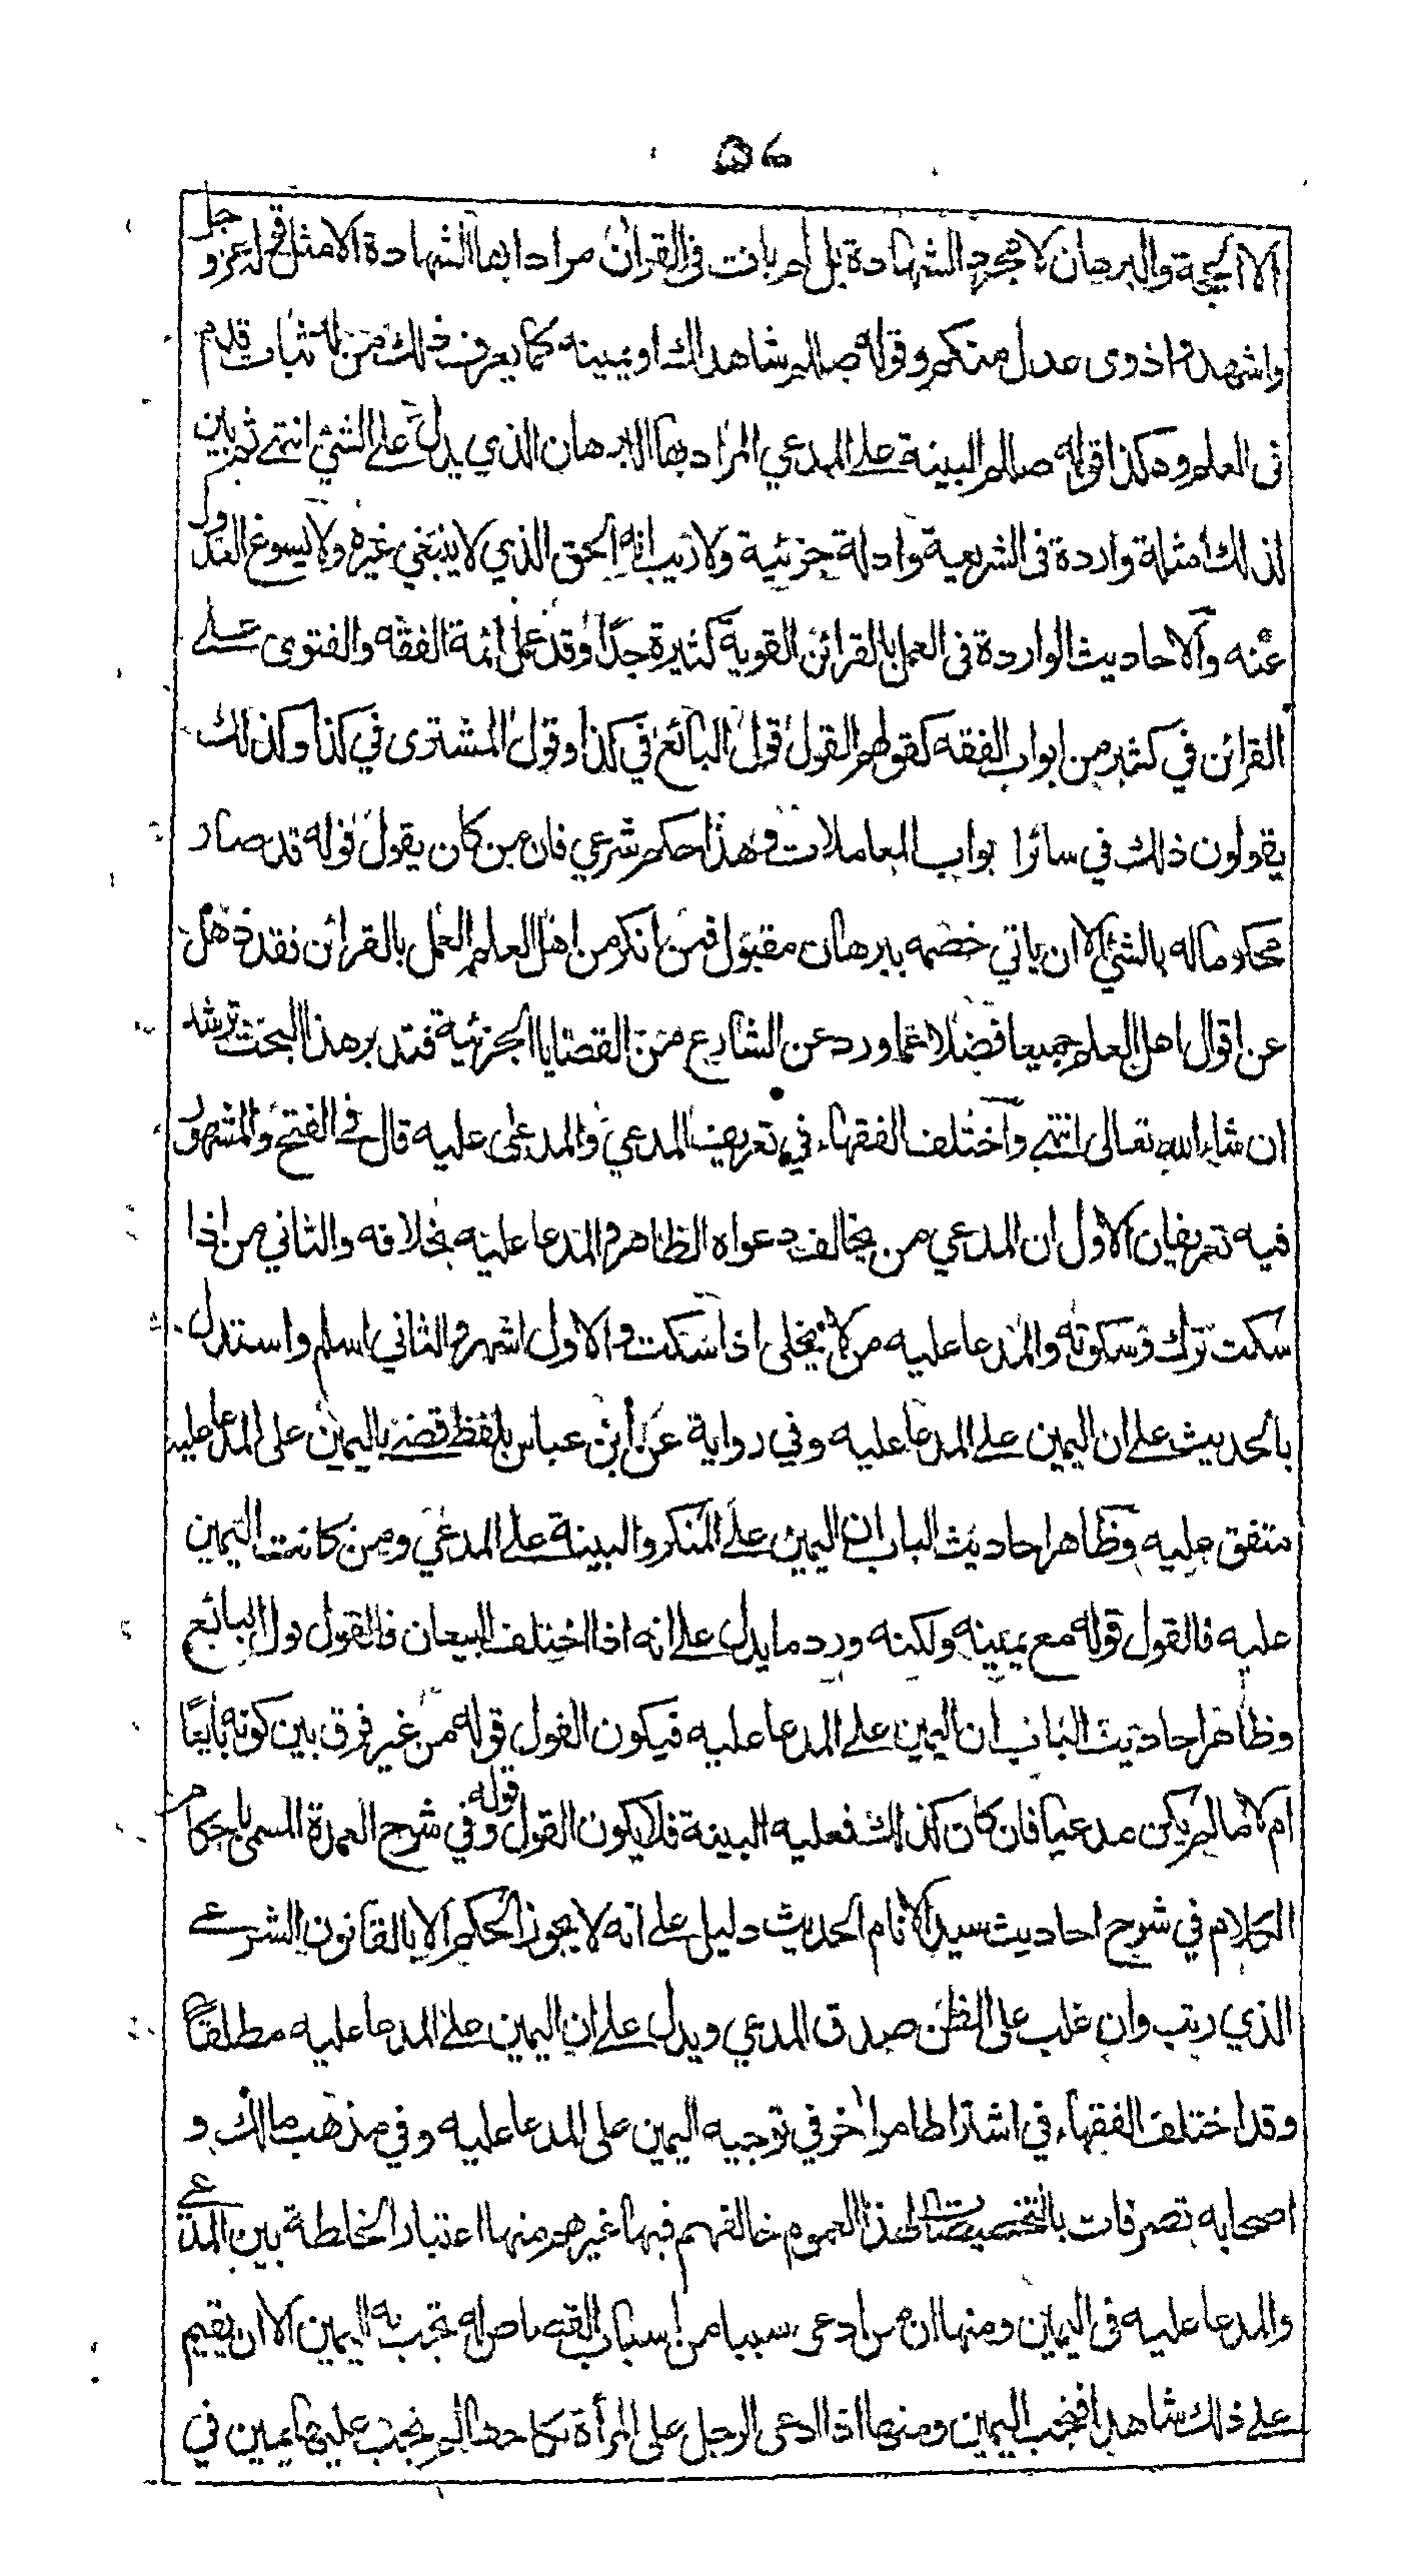 ٥٦
الا الحجة والبرهان لا مجرد الشهادة بل لم يات في القرآن مرادا بها الشهادة الا مثل قوله عز وجل
واشهدوا ذوى عدل منكم وقوله صللم شاهداك او يمينه كما يعرف ذلك من له ثبات قدم
فى العلم وهكذا قوله صللم البينة على المدعي المراد بها البرهان الذي يدل على الشئ انتهى ثم بين
لذلك امثلة واردة فى الشريعة وادلة جزئية ولا ريب انه الحق الذي لا ينبغي غيره ولا يسوغ العدول
عنه والاحاديث الواردة فى العمل بالقرائن القوية كثيرة جدا وقد عمل ائمة الفقه والفتوى على
القرائن في كثير من ابواب الفقه كقولهم القول قول البائع في كذا وقول المشترى في كذا وكذلك
يقولون ذلك في سائر ا بواب المعاملات وهذا حكم شرعي فان من كان يقول قوله قد صار
محكوما له بالشئ الا ان ياتي خصمه ببرهان مقبول فمن انكر من اهل العلم العمل بالقرائن فقد ذهل
عن اقوال اهل العلم جميعا فضلا عما ورد عن الشارع من القضايا الجزئية فتدبر هذا البحث ترشد
ان شاء الله تعالى انتهى واختلف الفقهاء في تعريف المدعي والمدعى عليه قال فى الفتح والمشهور
فيه تعريفان الاول ان المدعي من يخالف دعواه الظاهر والمدعا عليه بخلافه والثاني من اذا
سكت ترك وسكوته والمدعا عليه من لا يخلى اذا سكت والاول اشهر والثاني اسلم واستدل
بالحديث على ان اليمين على المدعا عليه وفي رواية عن ابن عباس بلفظ قضى باليمين على المدعا عليه
متفق عليه وظاهر احاديث الباب ان اليمين على المنكر والبينة على المدعي ومن كانت اليمين
عليه فالقول قوله مع يمينه ولكنه ورد ما يدل على انه اذا اختلف البيعان فالقول قول البائع
وظاهر احاديث الباب ان اليمين على المدعا عليه فيكون القول قوله من غير فرق بين كونه بايعا
ام لا ما لم يكن مدعيا فان كان كذلك فعليه البينة فلا يكون القول قوله وفي شرح العمدة المسمى باحكام
الكلام في شرح احاديث سيد الانام الحديث دليل على انه لا يجوز الحكم الا بالقانون الشرعي
الذي رتب وان غلب على الظن صدق المدعي ويدل على ان اليمين على المدعا عليه مطلقا
وقد اختلف الفقهاء في اشتراط امر اخر في توجيه اليمين على المدعا عليه وفي مذهب مالك و
اصحابه تصرفات بالتخصيصات لهذا العموم خالفهم فيها غيرهم منها اعتبار الخلطة بين المدعي
والمدعا عليه فى اليمين ومنها ان من ادعى سببا من اسباب القصاص لم تجب به اليمين الا ان يقيم
على ذلك شاهدا فتجب اليمين ومنها اذا ادعى الرجل على المرأة نكاحا لم تجب عليها يمين في